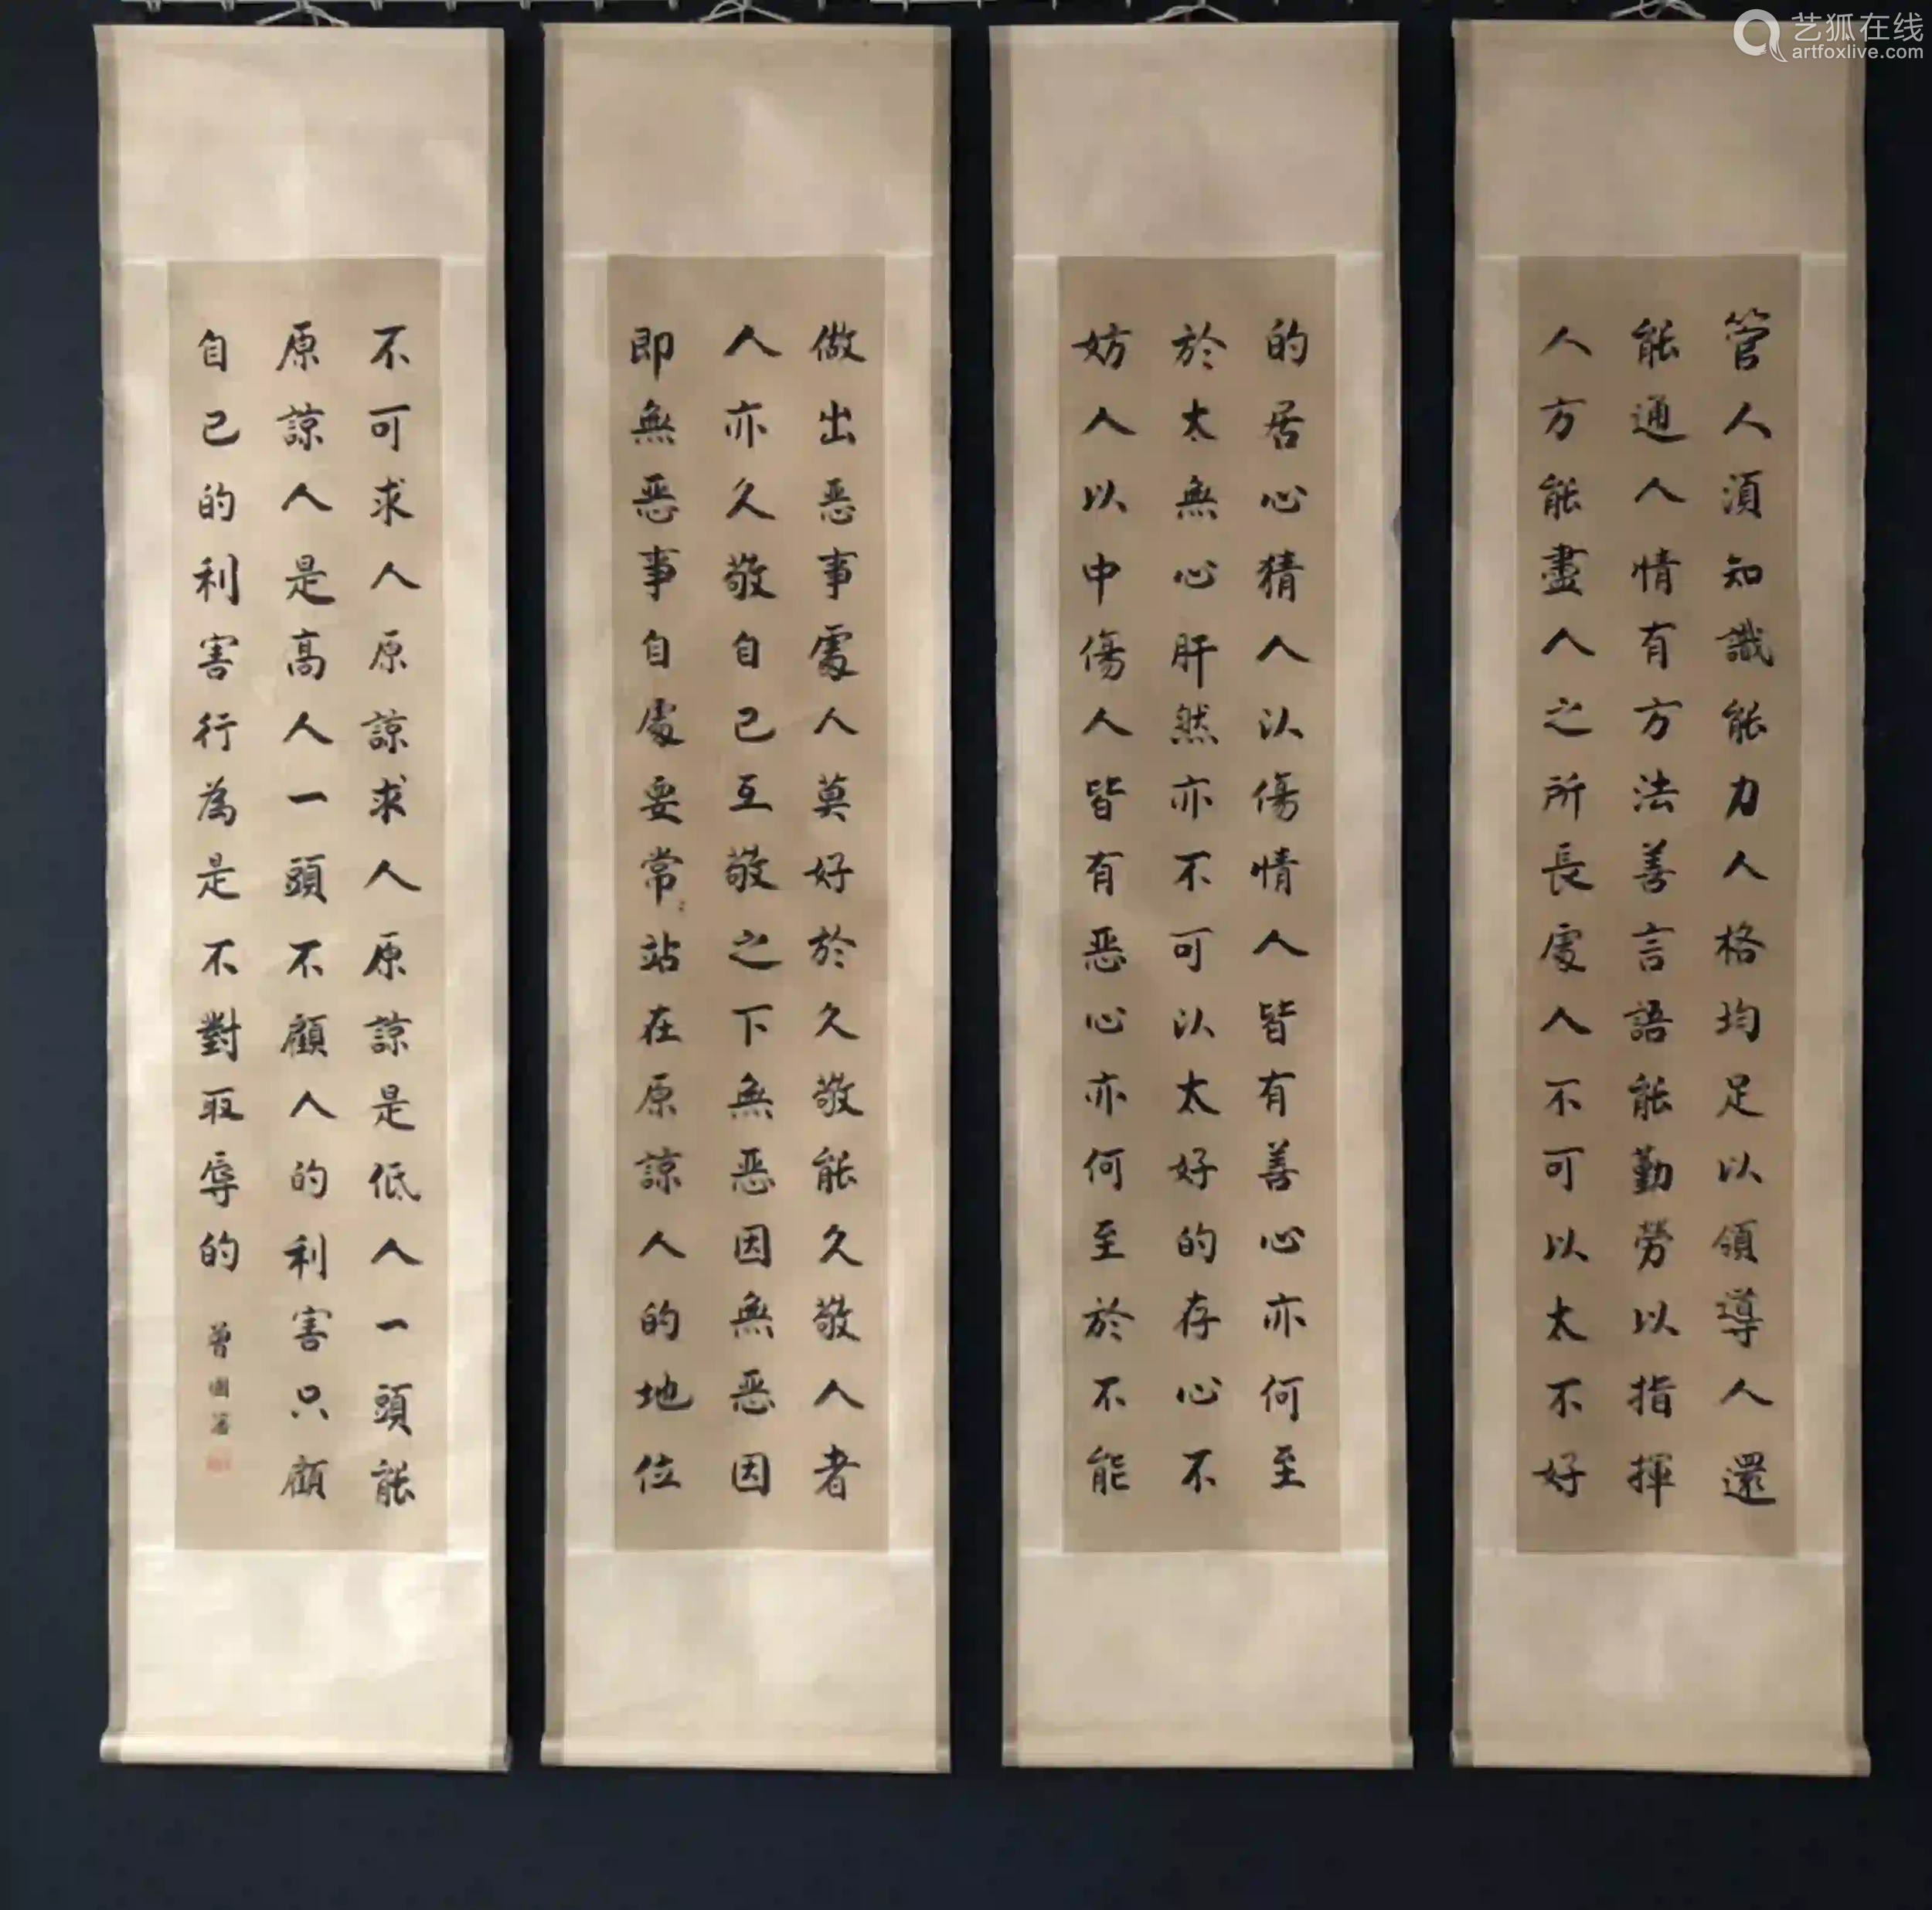 管人須知識能力人格均足以領導人還
能通人情有方法善言語能勤勞以指揮
人方能盡人之所長處人不可以太不好
的居心猜人以傷情人皆有善心亦何至
於太無心肝然亦不可以太好的存心不
妨人以中傷人皆有恶心亦何至於不能
做出恶事處人莫好於久敬能久敬人者
人亦久敬自己互敬之下無恶因無恶因
即無恶事自處要常站在原諒人的地位
不可求人原諒求人原諒是低人一頭能
原諒人是高人一頭不顧人的利害只顧
自己的利害行為是不對取辱的
曾國藩
艺狐在线
artfoxlive.com